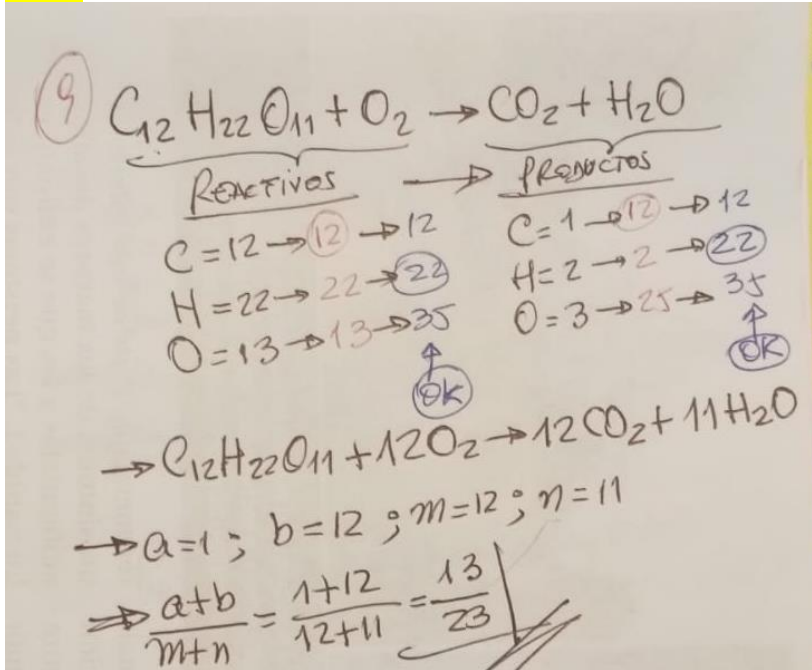 9 C₁₂H₂₂O₁₁ + O₂ → CO₂ + H₂O
REACTIVOS → PRODUCTOS
C = 12 → 12 → 12
H = 22 → 22 → 22
O = 13 → 13 → 35
OK
C = 1 → 12 → 12
H = 2 → 2 → 22
O = 3 → 25 → 35
OK
→ C₁₂H₂₂O₁₁ + 12O₂ → 12CO₂ + 11H₂O
→ a = 1 ; b = 12 ; m = 12 ; n = 11
⇒ a+b/m+n = 1+12/12+11 = 13/23